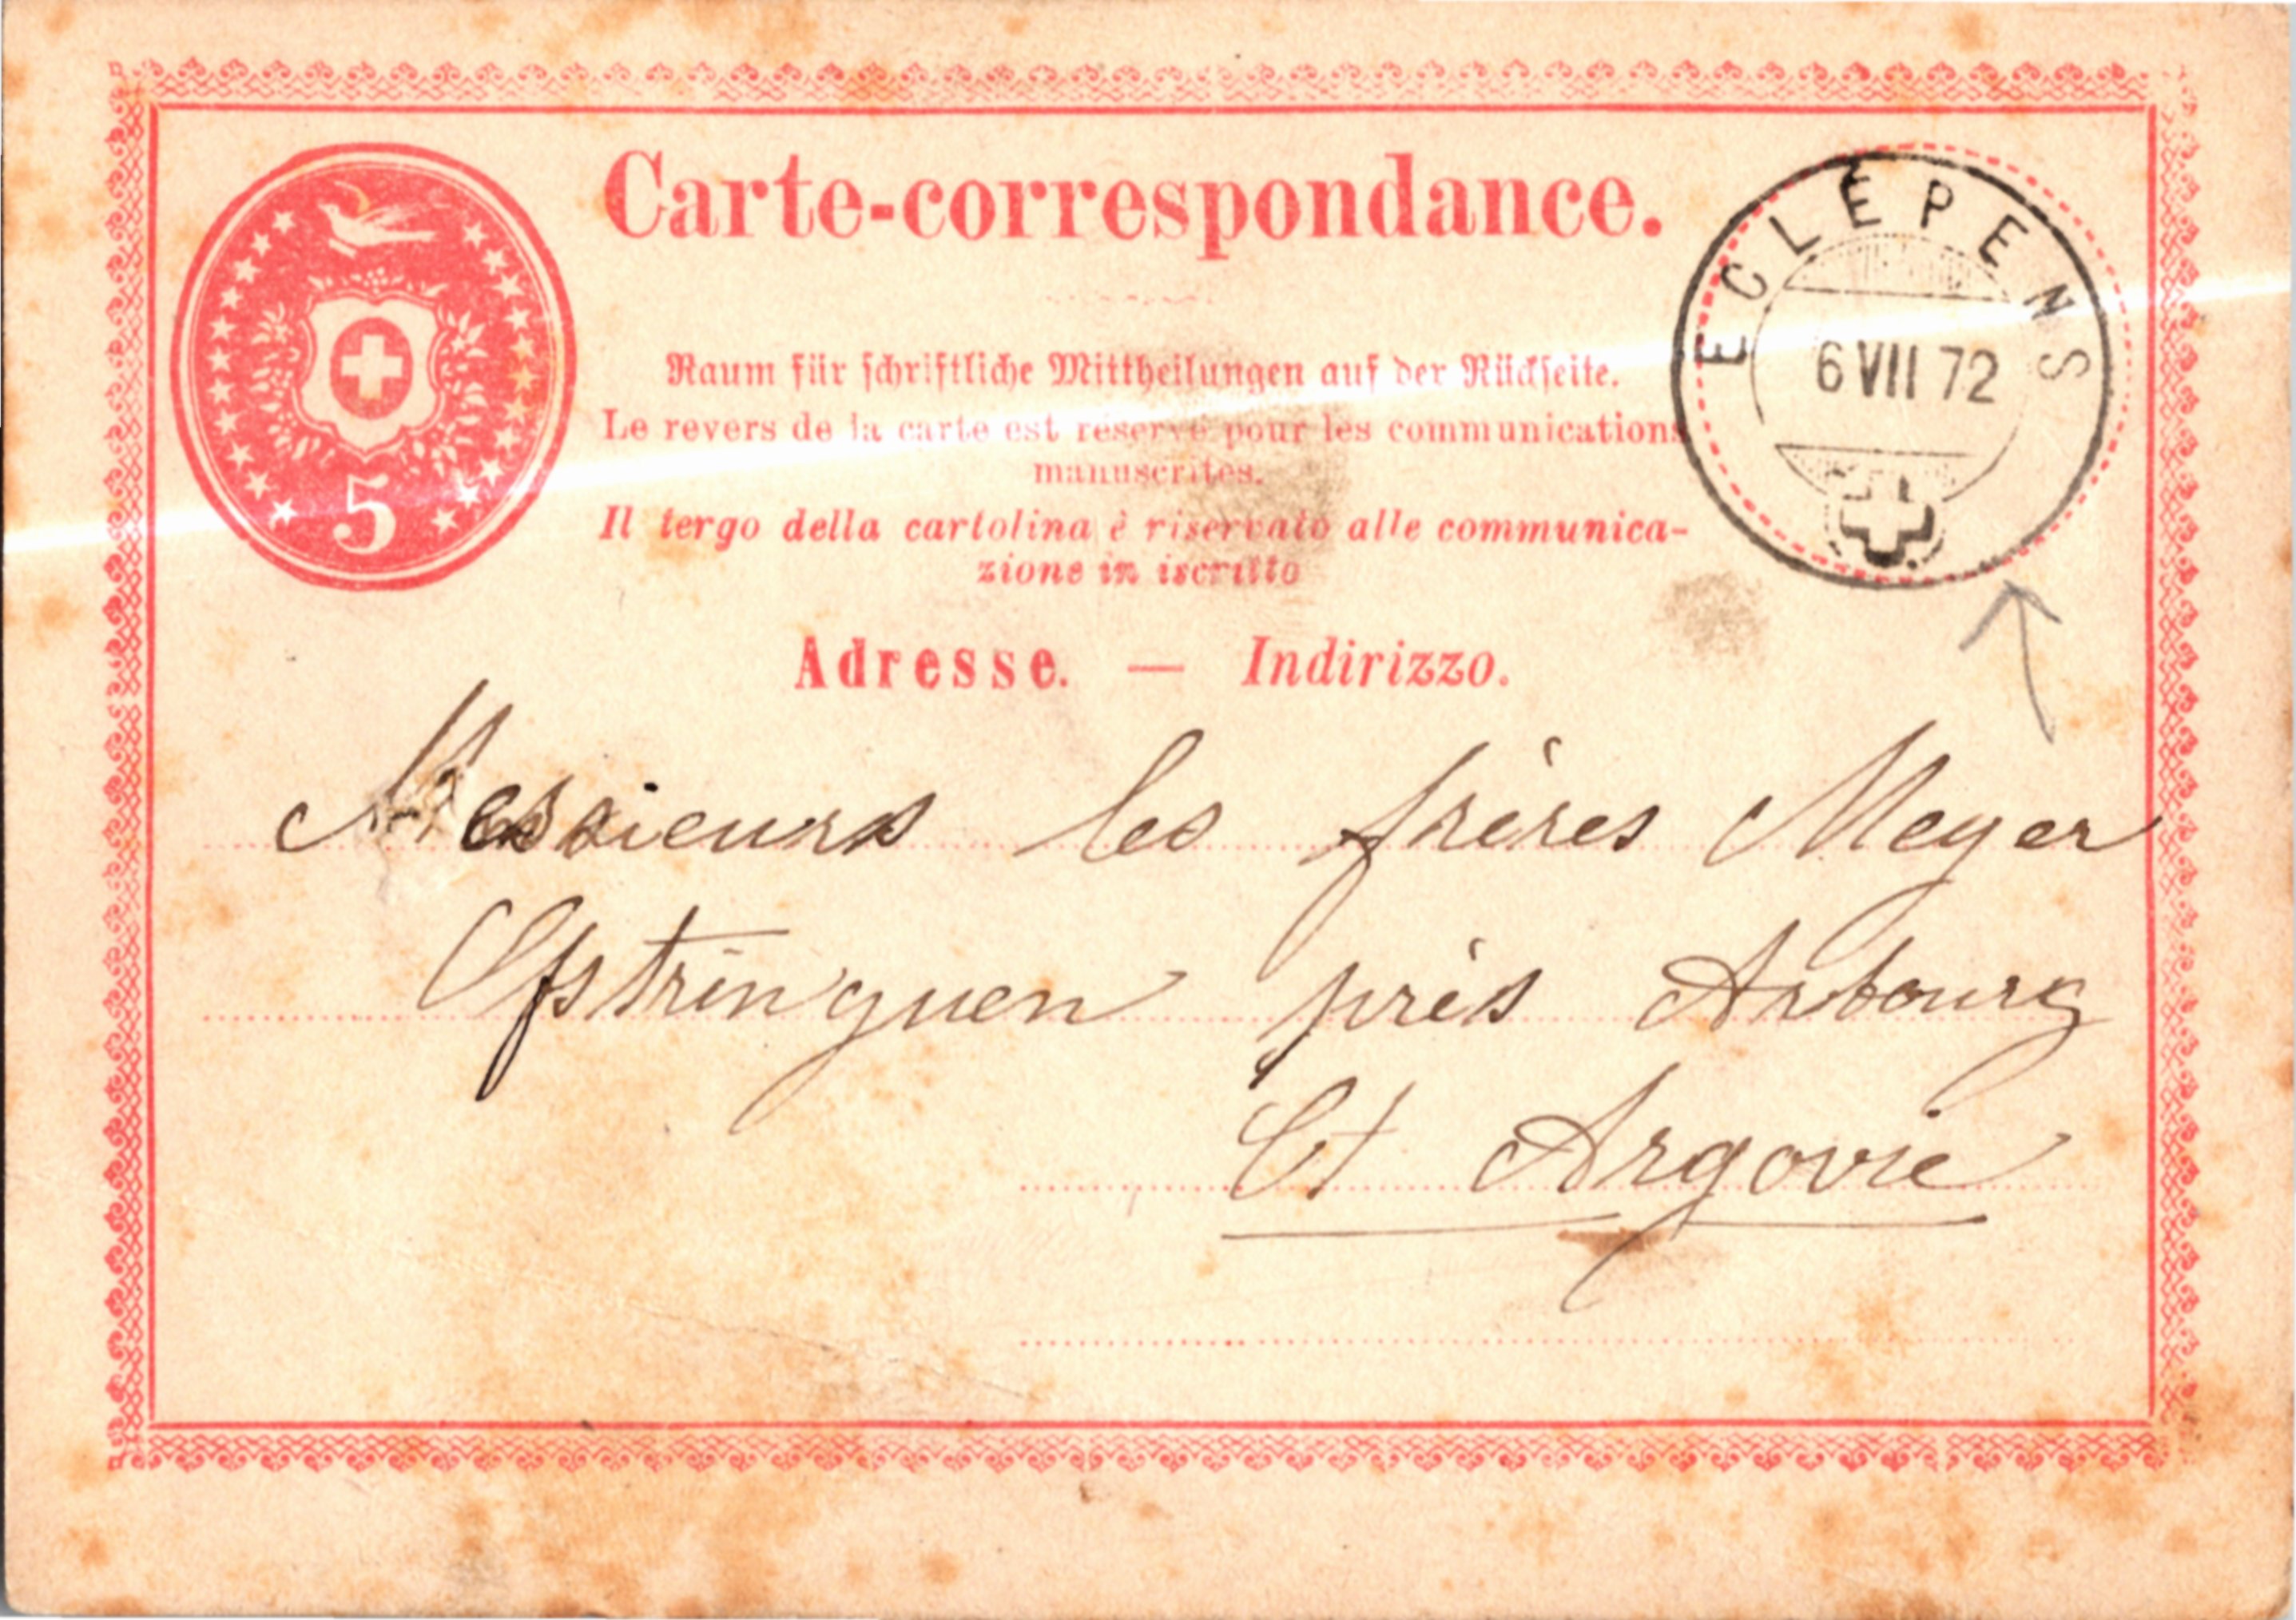 Carte-correspondance.
Raum für schriftliche Mittheilungen auf der Rückseite.
Le revers de la carte est réservé pour les communications
manuscrites.
Il tergo della cartolina è riservato alle communica-
zione in iscritto
5
ECLÉPENS
6 VII 72
Adresse. — Indirizzo.
Messieurs les frères Meyer
Ofstringuen près Arbourg
Ct Argovie